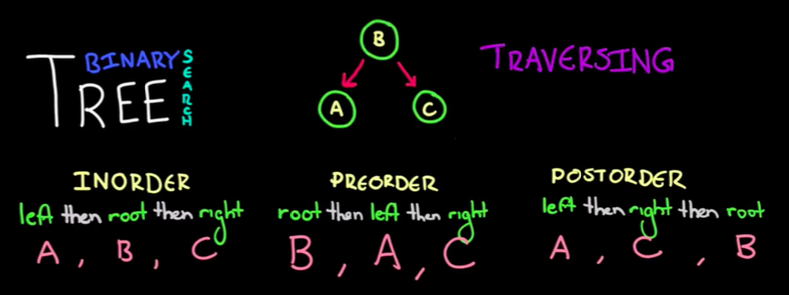 BINARY
SEARCH
TREE
B
A
C
TRAVERSING
INORDER
left then root then right
A , B , C
PREORDER
root then left then right
B , A , C
POSTORDER
left then right then root
A , C , B